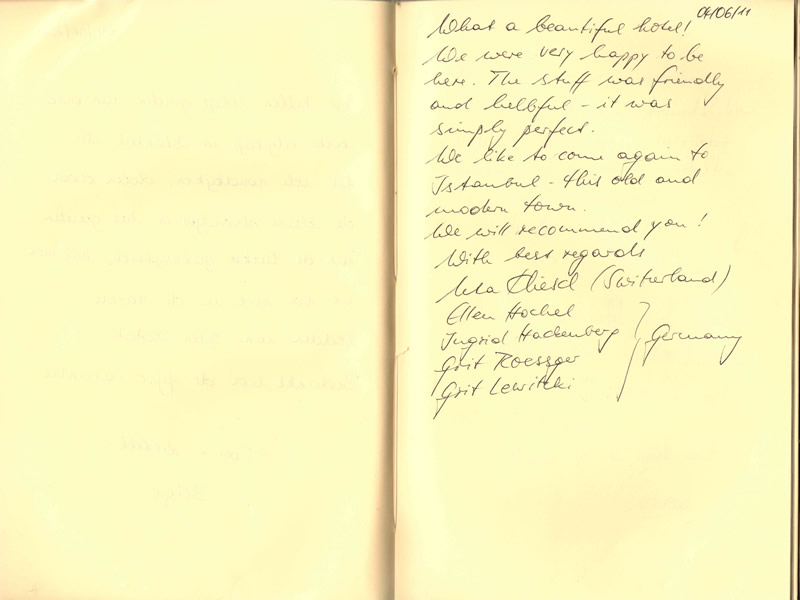 04/06/11
What a beautiful hotel!
We were very happy to be
here. The stuff was friendly
and helbful - it was
simply perfect.
We like to come again to
Istanbul - this old and
modern town.
We will recommend you!
With best regards
(Switzerland)
Ellen Hochel
Ingrid Hackenberg
Germany
Grit Roessger
Grit Lewitzki